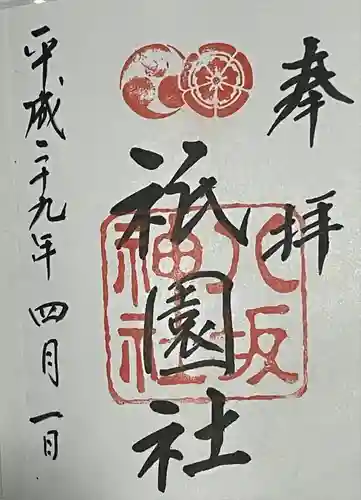 奉拝
八坂神社
祇園社
平成二十九年四月一日